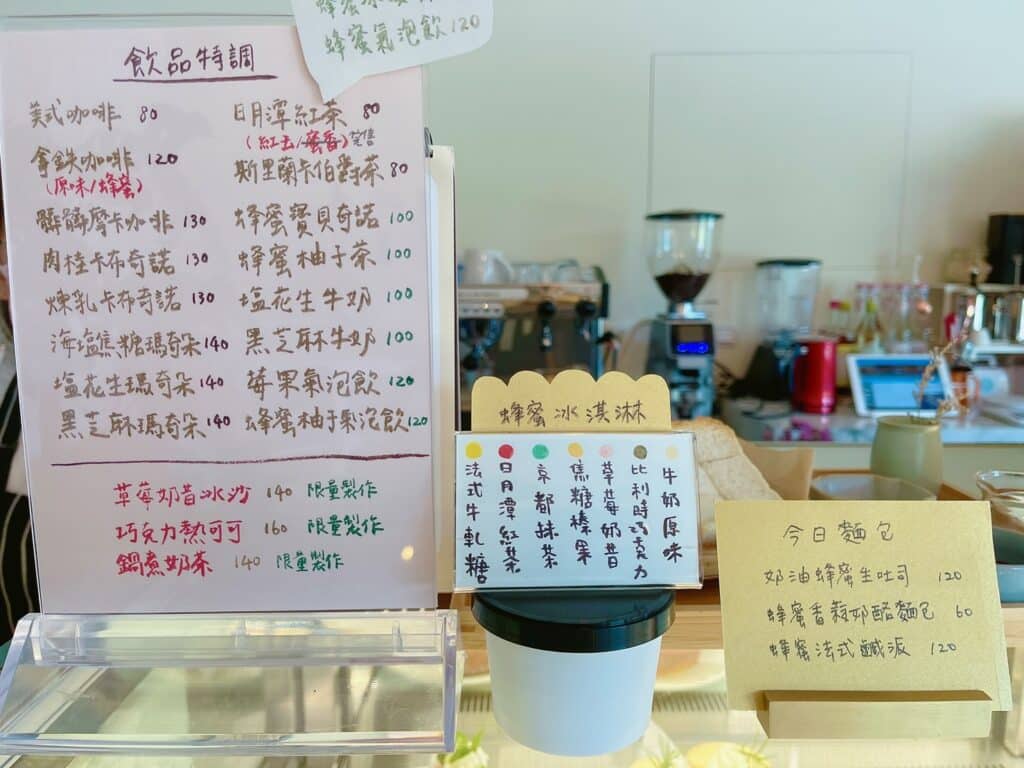 蜂蜜氣泡飲120
飲品特調
美式咖啡 80
拿鐵咖啡 120
(原味/蜂蜜)
髒髒摩卡咖啡 130
肉桂卡布奇諾 130
煉乳卡布奇諾 130
海塩焦糖瑪奇朵 140
塩花生瑪奇朵 140
黑芝麻瑪奇朵 140
日月潭紅茶 80
(紅玉/蜜香)完售
斯里蘭卡伯爵茶 80
蜂蜜寶貝奇諾 100
蜂蜜柚子茶 100
塩花生牛奶 100
黑芝麻牛奶 100
莓果氣泡飲 120
蜂蜜柚子氣泡飲120
草莓奶昔冰沙 140 限量製作
巧克力熱可可 160 限量製作
鍋煮奶茶 140 限量製作
蜂蜜冰淇淋
法式牛軋糖
日月潭紅茶
京都抹茶
焦糖榛果
草莓奶昔
比利時巧克力
牛奶原味
今日麵包
奶油蜂蜜生吐司 120
蜂蜜香蒜奶酪麵包 60
蜂蜜法式鹹派 120